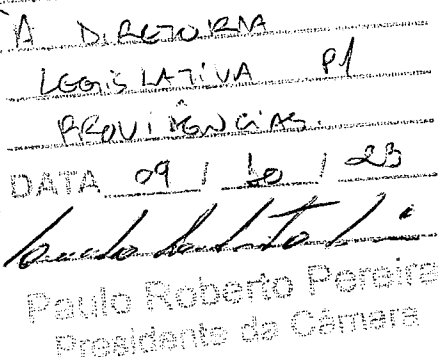 À DIRETORIA
LEGISLATIVA P/
PROVIDÊNCIAS.
DATA 09 / 10 / 23
Paulo Roberto Pereira
Presidente da Câmara